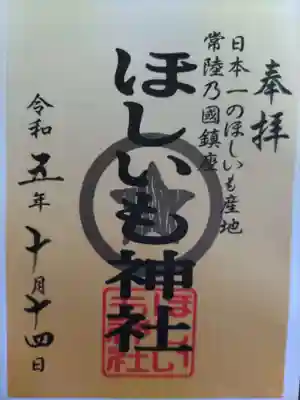 奉拝
日本一のほしいも産地
常陸乃國鎮座
ほしいも神社
令和五年十月十四日
ほしい
も神社